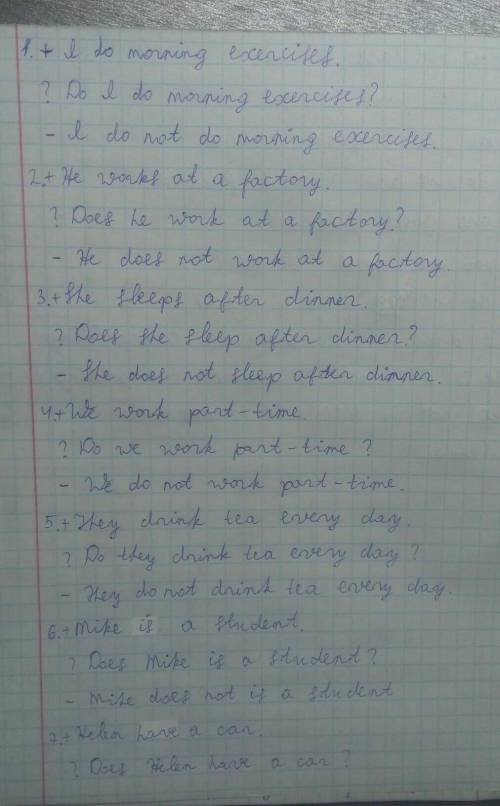 1. + I do morning exercises.
? Do I do morning exercises?
- I do not do morning exercises.
2.+ He works at a factory.
? Does he work at a factory?
- He does not work at a factory.
3.+ She sleeps after dinner.
? Does she sleep after dinner?
- She does not sleep after dinner.
4.+ We work part-time.
? Do we work part-time?
- We do not work part-time.
5.+ They drink tea every day.
? Do they drink tea every day?
- They do not drink tea every day.
6.+ Mike is a student.
? Does Mike is a student?
- Mike does not is a student
7.+ Helen have a car.
? Does Helen have a car?